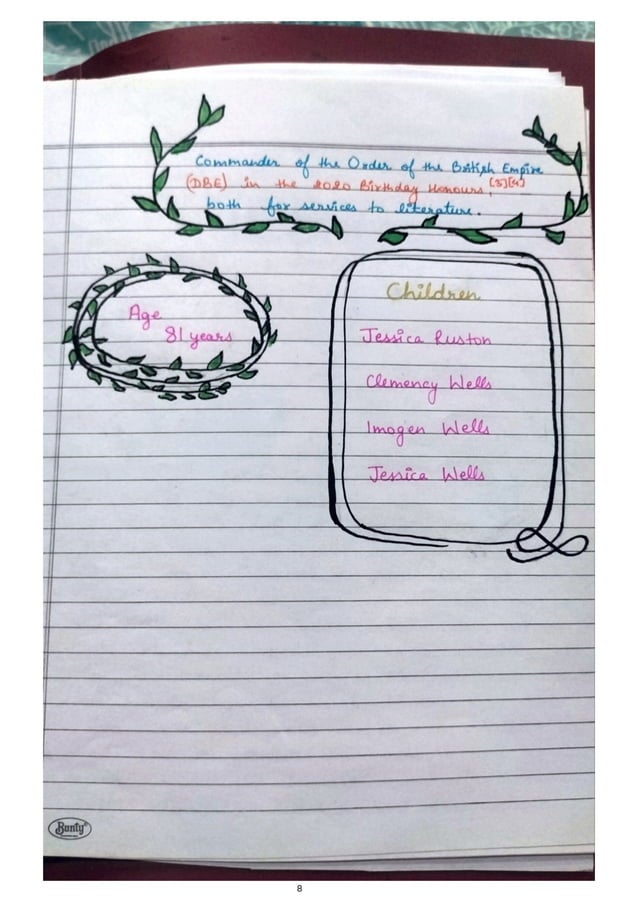 Commander of the Order of the British Empire
(DBE) in the 2020 Birthday Honours,[3][4]
both for services to literature.
Age
81 years
Children
Jessica Ruston
Clemency Wells
Imogen Wells
Jessica Wells
Bunty
8